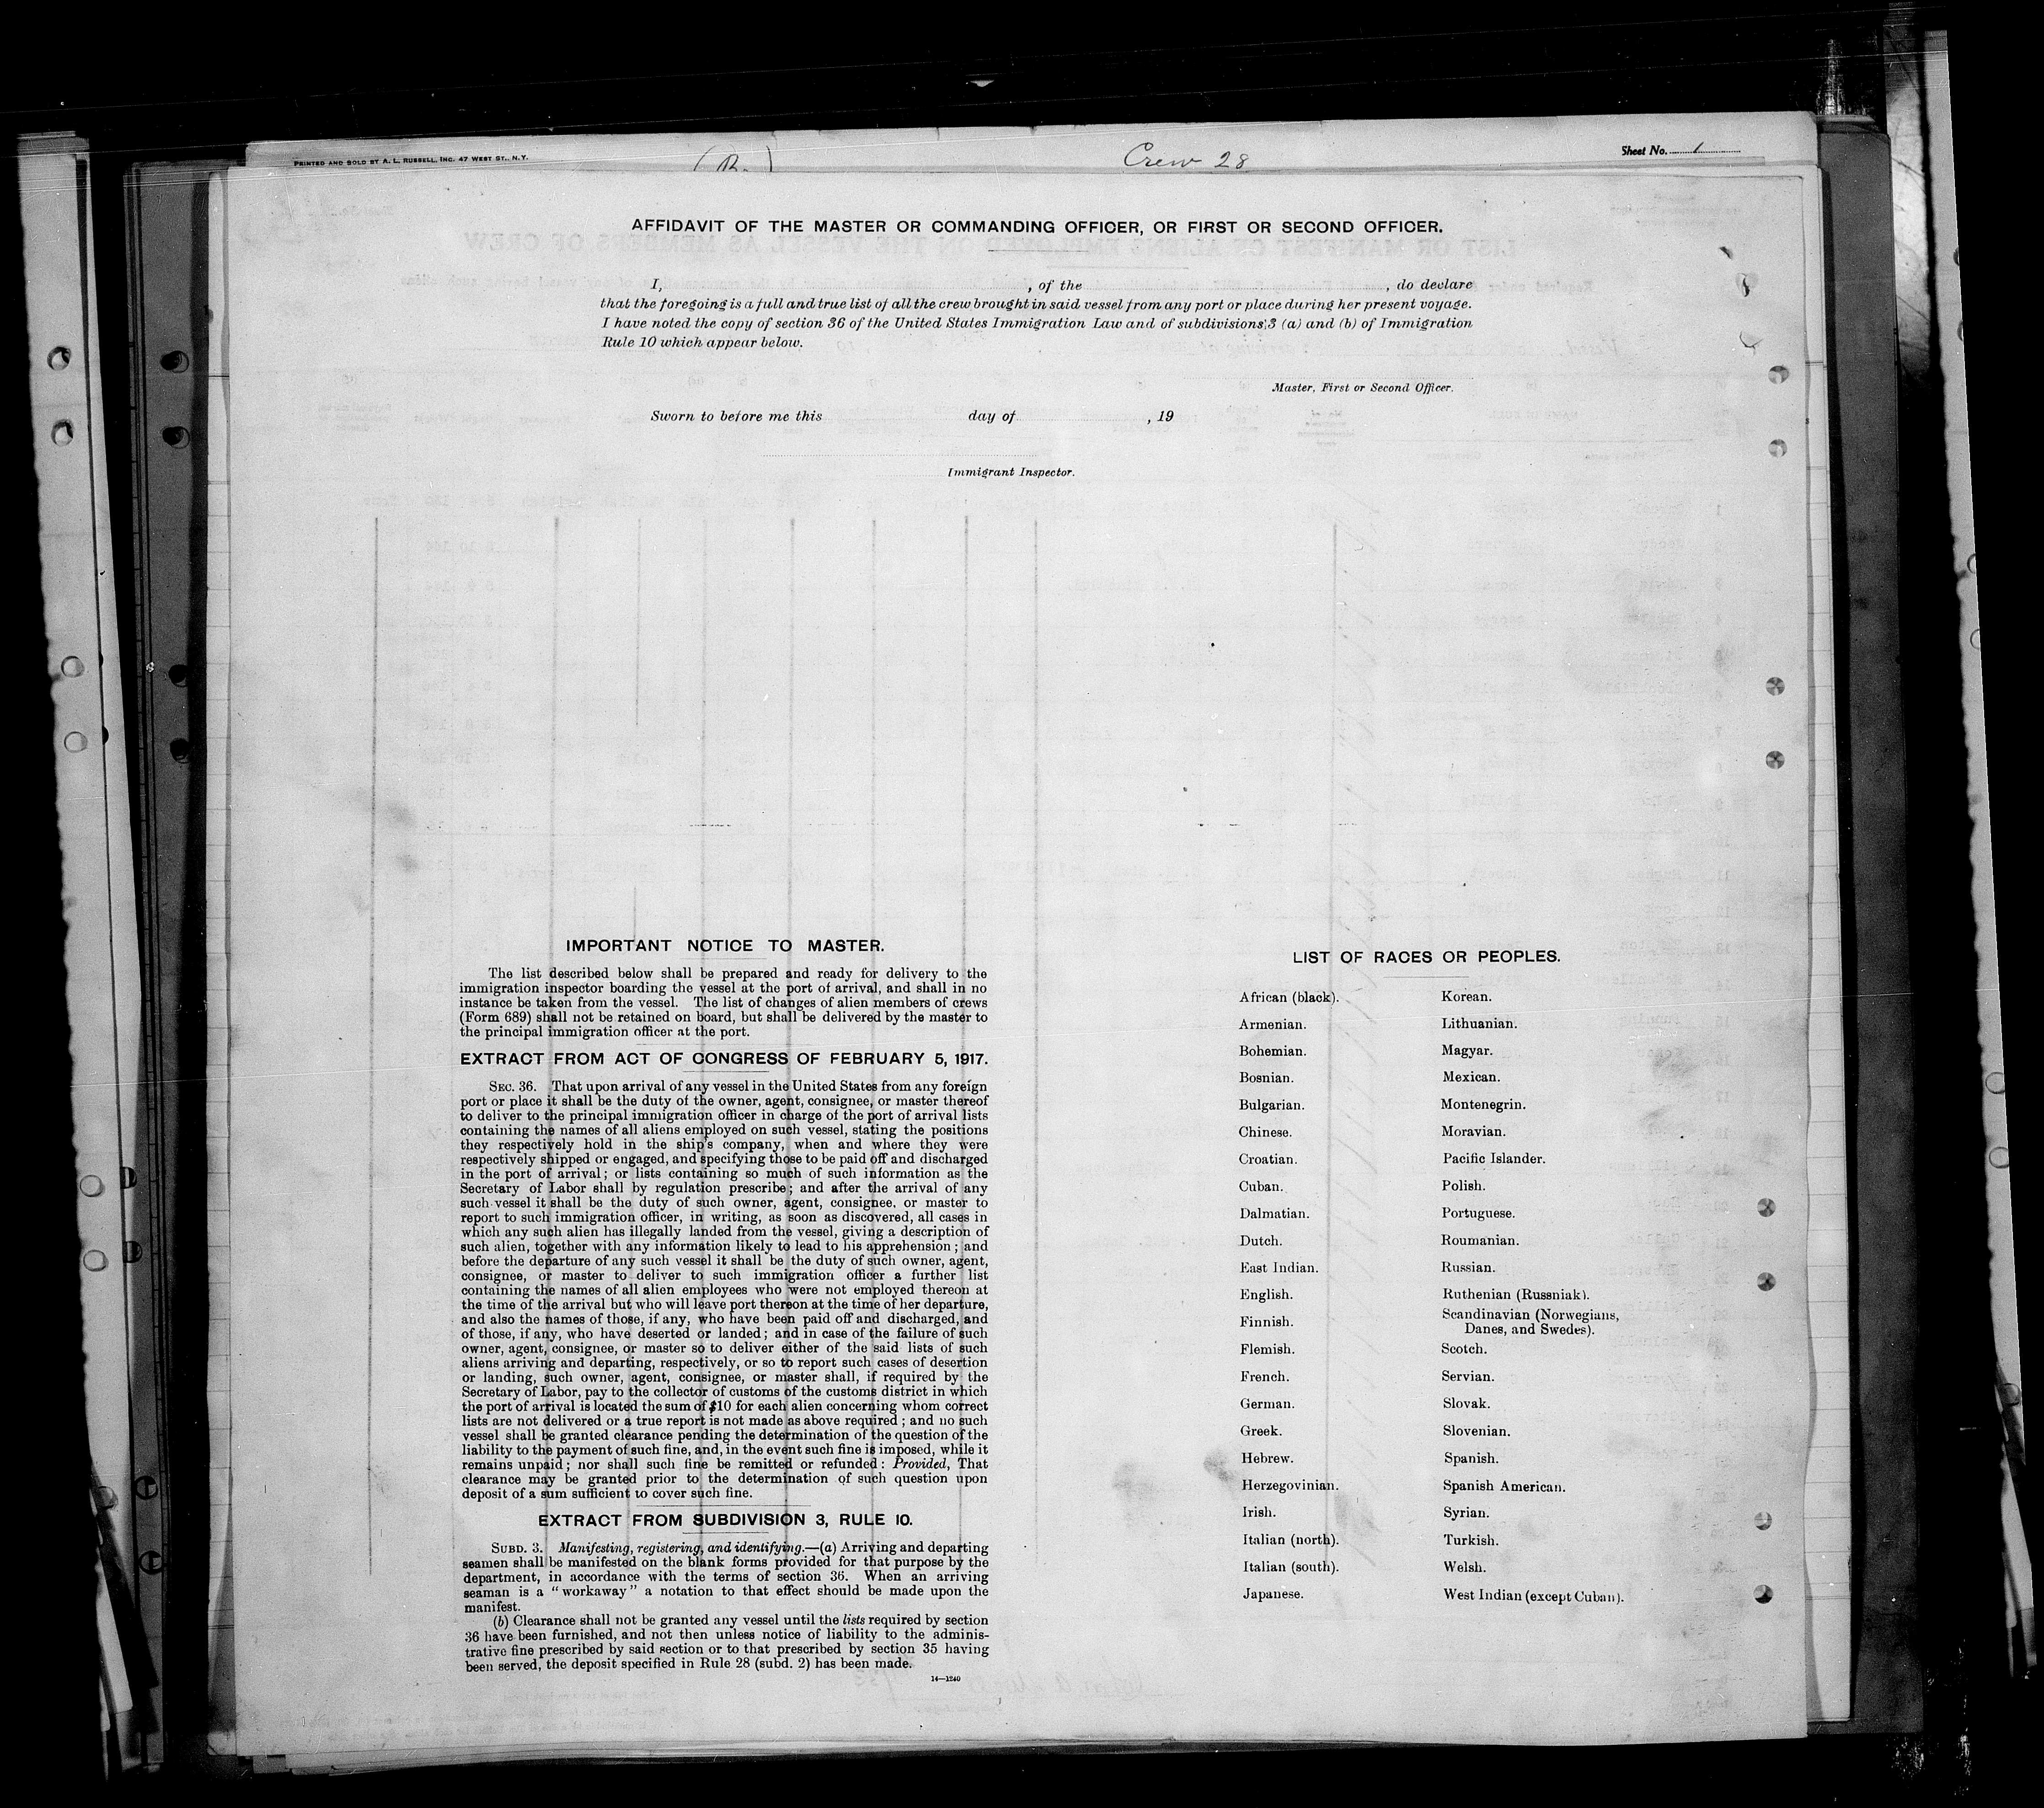 PRINTED AND SOLD BY A. L. RUSSELL, INC. 47 WEST ST., N.Y.
Crew 28
Sheet No. 1
AFFIDAVIT OF THE MASTER OR COMMANDING OFFICER, OR FIRST OR SECOND OFFICER.
I, , of the , do declare
that the foregoing is a full and true list of all the crew brought in said vessel from any port or place during her present voyage.
I have noted the copy of section 36 of the United States Immigration Law and of subdivisions 3 (a) and (b) of Immigration
Rule 10 which appear below.
Master, First or Second Officer.
Sworn to before me this day of , 19
Immigrant Inspector.
IMPORTANT NOTICE TO MASTER.
The list described below shall be prepared and ready for delivery to the
immigration inspector boarding the vessel at the port of arrival, and shall in no
instance be taken from the vessel. The list of changes of alien members of crews
(Form 689) shall not be retained on board, but shall be delivered by the master to
the principal immigration officer at the port.
EXTRACT FROM ACT OF CONGRESS OF FEBRUARY 5, 1917.
SEC. 36. That upon arrival of any vessel in the United States from any foreign
port or place it shall be the duty of the owner, agent, consignee, or master thereof
to deliver to the principal immigration officer in charge of the port of arrival lists
containing the names of all aliens employed on such vessel, stating the positions
they respectively hold in the ship's company, when and where they were
respectively shipped or engaged, and specifying those to be paid off and discharged
in the port of arrival; or lists containing so much of such information as the
Secretary of Labor shall by regulation prescribe; and after the arrival of any
such vessel it shall be the duty of such owner, agent, consignee, or master to
report to such immigration officer, in writing, as soon as discovered, all cases in
which any such alien has illegally landed from the vessel, giving a description of
such alien, together with any information likely to lead to his apprehension; and
before the departure of any such vessel it shall be the duty of such owner, agent,
consignee, or master to deliver to such immigration officer a further list
containing the names of all alien employees who were not employed thereon at
the time of the arrival but who will leave port thereon at the time of her departure,
and also the names of those, if any, who have been paid off and discharged, and
of those, if any, who have deserted or landed; and in case of the failure of such
owner, agent, consignee, or master so to deliver either of the said lists of such
aliens arriving and departing, respectively, or so to report such cases of desertion
or landing, such owner, agent, consignee, or master shall, if required by the
Secretary of Labor, pay to the collector of customs of the customs district in which
the port of arrival is located the sum of $10 for each alien concerning whom correct
lists are not delivered or a true report is not made as above required; and no such
vessel shall be granted clearance pending the determination of the question of the
liability to the payment of such fine, and, in the event such fine is imposed, while it
remains unpaid; nor shall such fine be remitted or refunded: Provided, That
clearance may be granted prior to the determination of such question upon
deposit of a sum sufficient to cover such fine.
EXTRACT FROM SUBDIVISION 3, RULE 10.
SUBD. 3. Manifesting, registering, and identifying.—(a) Arriving and departing
seamen shall be manifested on the blank forms provided for that purpose by the
department, in accordance with the terms of section 36. When an arriving
seaman is a "workaway" a notation to that effect should be made upon the
manifest.
(b) Clearance shall not be granted any vessel until the lists required by section
36 have been furnished, and not then unless notice of liability to the adminis-
trative fine prescribed by said section or to that prescribed by section 35 having
been served, the deposit specified in Rule 28 (subd. 2) has been made.
14—1240
LIST OF RACES OR PEOPLES.
African (black).
Armenian.
Bohemian.
Bosnian.
Bulgarian.
Chinese.
Croatian.
Cuban.
Dalmatian.
Dutch.
East Indian.
English.
Finnish.
Flemish.
French.
German.
Greek.
Hebrew.
Herzegovinian.
Irish.
Italian (north).
Italian (south).
Japanese.
Korean.
Lithuanian.
Magyar.
Mexican.
Montenegrin.
Moravian.
Pacific Islander.
Polish.
Portuguese.
Roumanian.
Russian.
Ruthenian (Russniak).
Scandinavian (Norwegians,
Danes, and Swedes).
Scotch.
Servian.
Slovak.
Slovenian.
Spanish.
Spanish American.
Syrian.
Turkish.
Welsh.
West Indian (except Cuban).